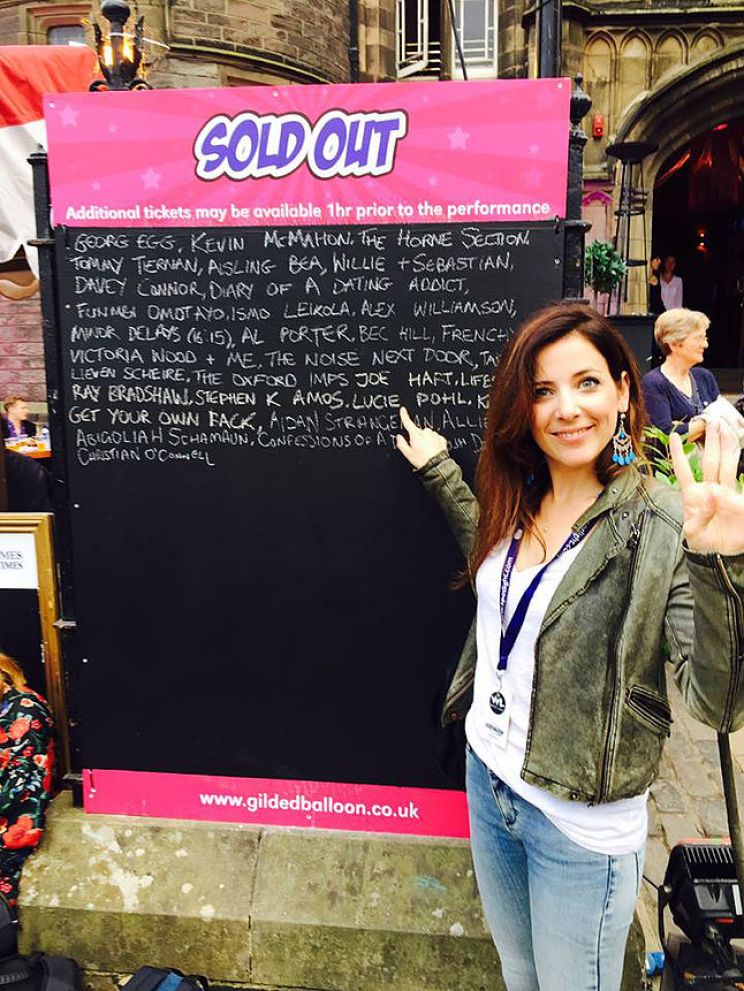 SOLD OUT
Additional tickets may be available 1hr prior to the performance
GEORG EGG, KEVIN McMAHON, THE HORNE SECTION,
TOMMY TIERNAN, AISLING BEA, WILLIE + SEBASTIAN,
DAVEY CONNOR, DIARY OF A DATING ADDICT,
FUNMBI OMOTAYO, ISMO LEIKOLA, ALEX WILLIAMSON,
MINOR DELAYS (16:15), AL PORTER, BEC HILL, FRENCHY
VICTORIA WOOD + ME, THE NOISE NEXT DOOR,
LIEVEN SCHEIRE, THE OXFORD IMPS JOE HAFT,
RAY BRADSHAW, STEPHEN K AMOS, LUCIE POHL,
GET YOUR OWN BACK, AIDAN
ABIGOLIAH SCHAMAUN, CONFESSIONS OF A
CHRISTIAN O'CONNELL
TIMES
www.gildedballoon.co.uk